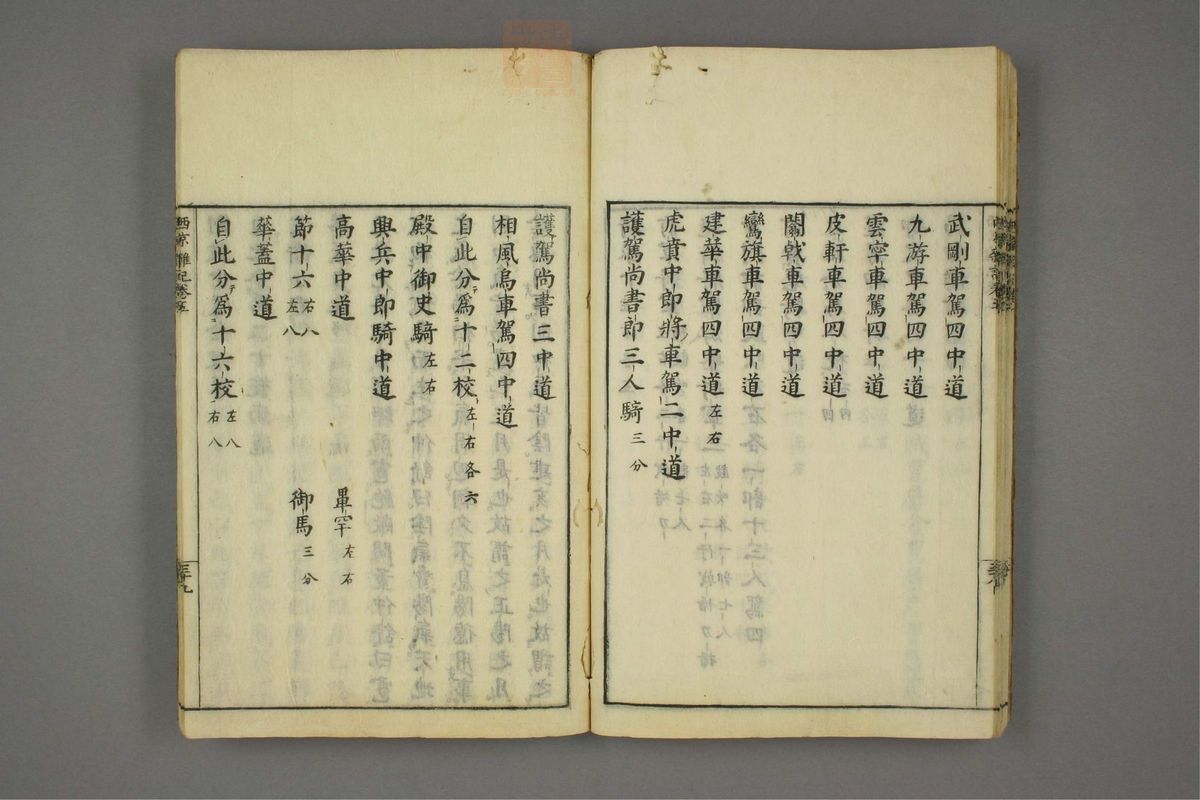 武剛車駕四中道
九游車駕四中道
雲罕車駕四中道
皮軒車駕四中道
闟戟車駕四中道
鸞旗車駕四中道
建華車駕四中道 左右
虎賁中郎將車駕二中道
護駕尚書郎三人騎 三分
護駕尚書三中道
相風烏車駕四中道
自此分爲十二校 左右各六
殿中御史騎 左右
興兵中郎騎中道
高華中道 畢罕 左右
節十六 右八 左八 御馬 三分
華蓋中道
自此分爲十六校 左八 右八
西京雜記卷五 三十九